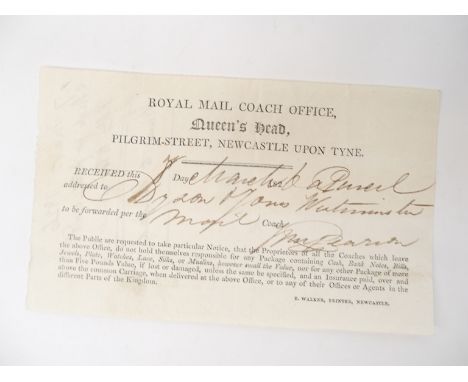 ROYAL MAIL COACH OFFICE,
Queen's Head,
PILGRIM-STREET, NEWCASTLE UPON TYNE.
RECEIVED this Day March a Parcel
addressed to Dyson & Jones Westminster
to be forwarded per the Mail Coach
Pearson
The Public are requested to take particular Notice, that the Proprietors of all the Coaches which leave
the above Office, do not hold themselves responsible for any Package containing Cash, Bank Notes, Bills,
Jewels, Plate, Watches, Lace, Silks, or Muslins, however small the Value, nor for any other Package of more
than Five Pounds Value, if lost or damaged, unless the same be specified, and an Insurance paid, over and
above the common Carriage, when delivered at the above Office, or to any of their Offices or Agents in the
different Parts of the Kingdom.
E. WALKER, PRINTER, NEWCASTLE.